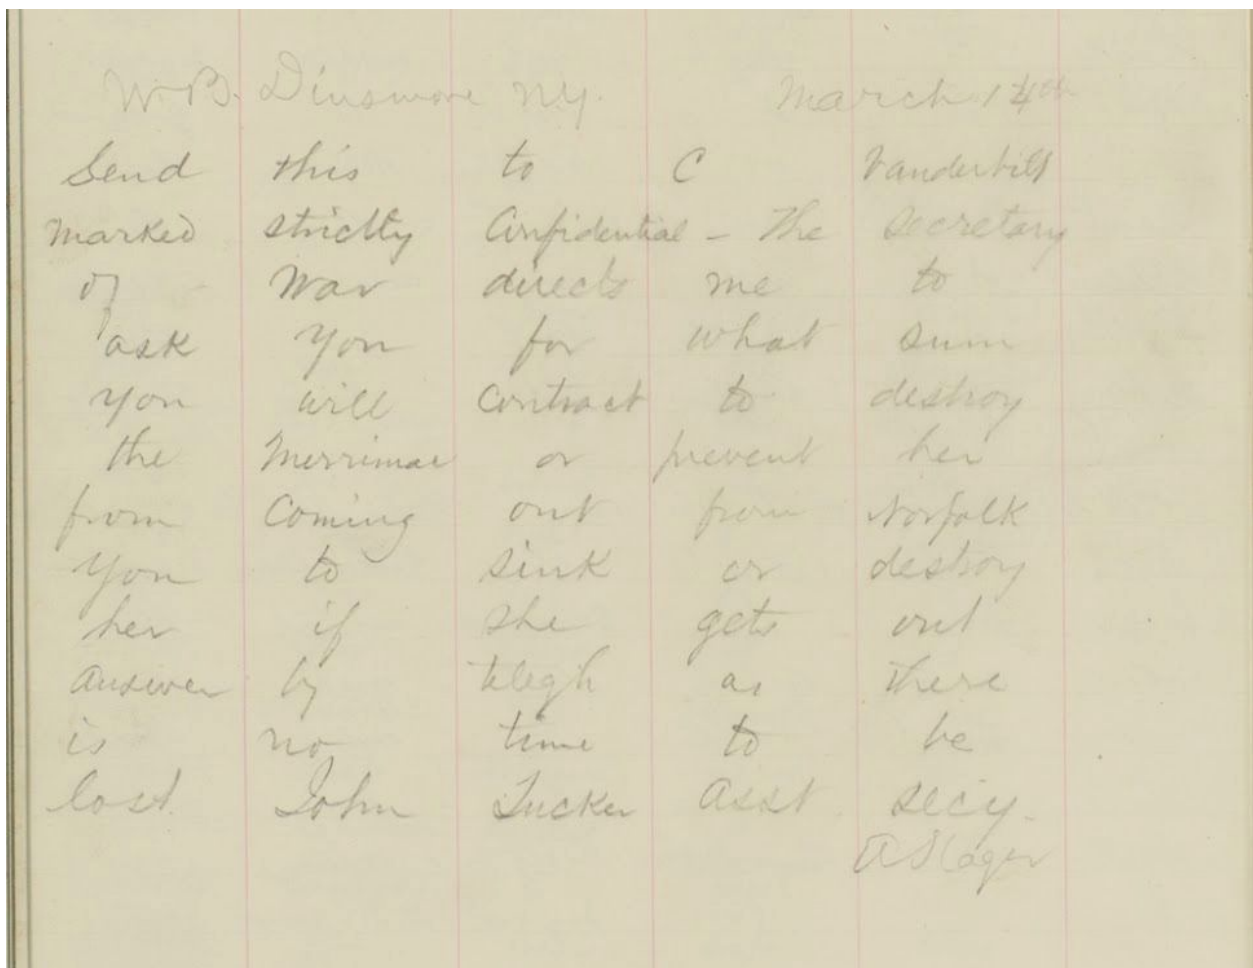 W. B. Dinsmore N.Y. March 14th
Send this to C Vanderbilt
marked strictly Confidential - The Secretary
of War directs me to
ask you for what sum
you will contract to destroy
the Merrimac or prevent her
from Coming out from Norfolk
You to sink or destroy
her if she gets out
answer by telegh as there
is no time to be
lost. John Tucker Asst. Secy.
A Stager